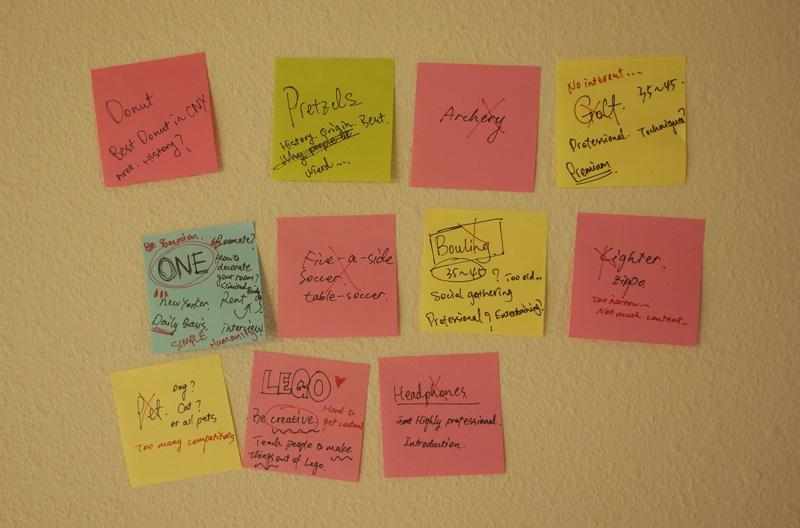 Donut
Best Donut in CNY
Area. History?
Pretzels
History. Origin. Best.
Why people
Weird....
Archery
No interest...
Golf. 35~45.
Professional. Technique?
Premium
Be Emotion.
ONE
New Yorker.
Daily Basis.
SIMPLE
Roomate?
How to
decorate
your room?
Limited
Rent
interview
Humanity
Five-a-side
Soccer.
table-soccer.
Bowling
35~45? Too old...
Social gathering
Professional? Entertaining?
Lighter.
Zippo.
Too narrow...
Not much content...
Pet.
Dog?
Cat?
or all pets
Too many competitors
LEGO
Be creative
Hard to
get content
Teach people to make
things out of Lego.
Headphones.
Highly professional.
Introduction.